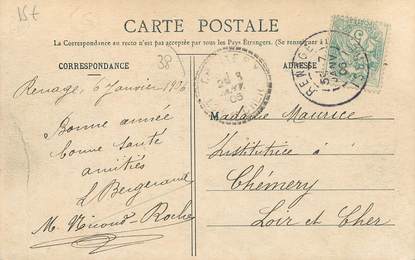 15t
CARTE POSTALE
La Correspondance au recto n'est pas acceptée par tous les Pays Étrangers. (Se renseigner à
CORRESPONDANCE
ADRESSE
38
Renage, 6 Janvier 1906
Bonne année
bonne santé
amitiés
L Bergerand
M. Nicoud-Roche
Madame Maurice
Institutrice à
Chémery
Loir et Cher
RENAGE